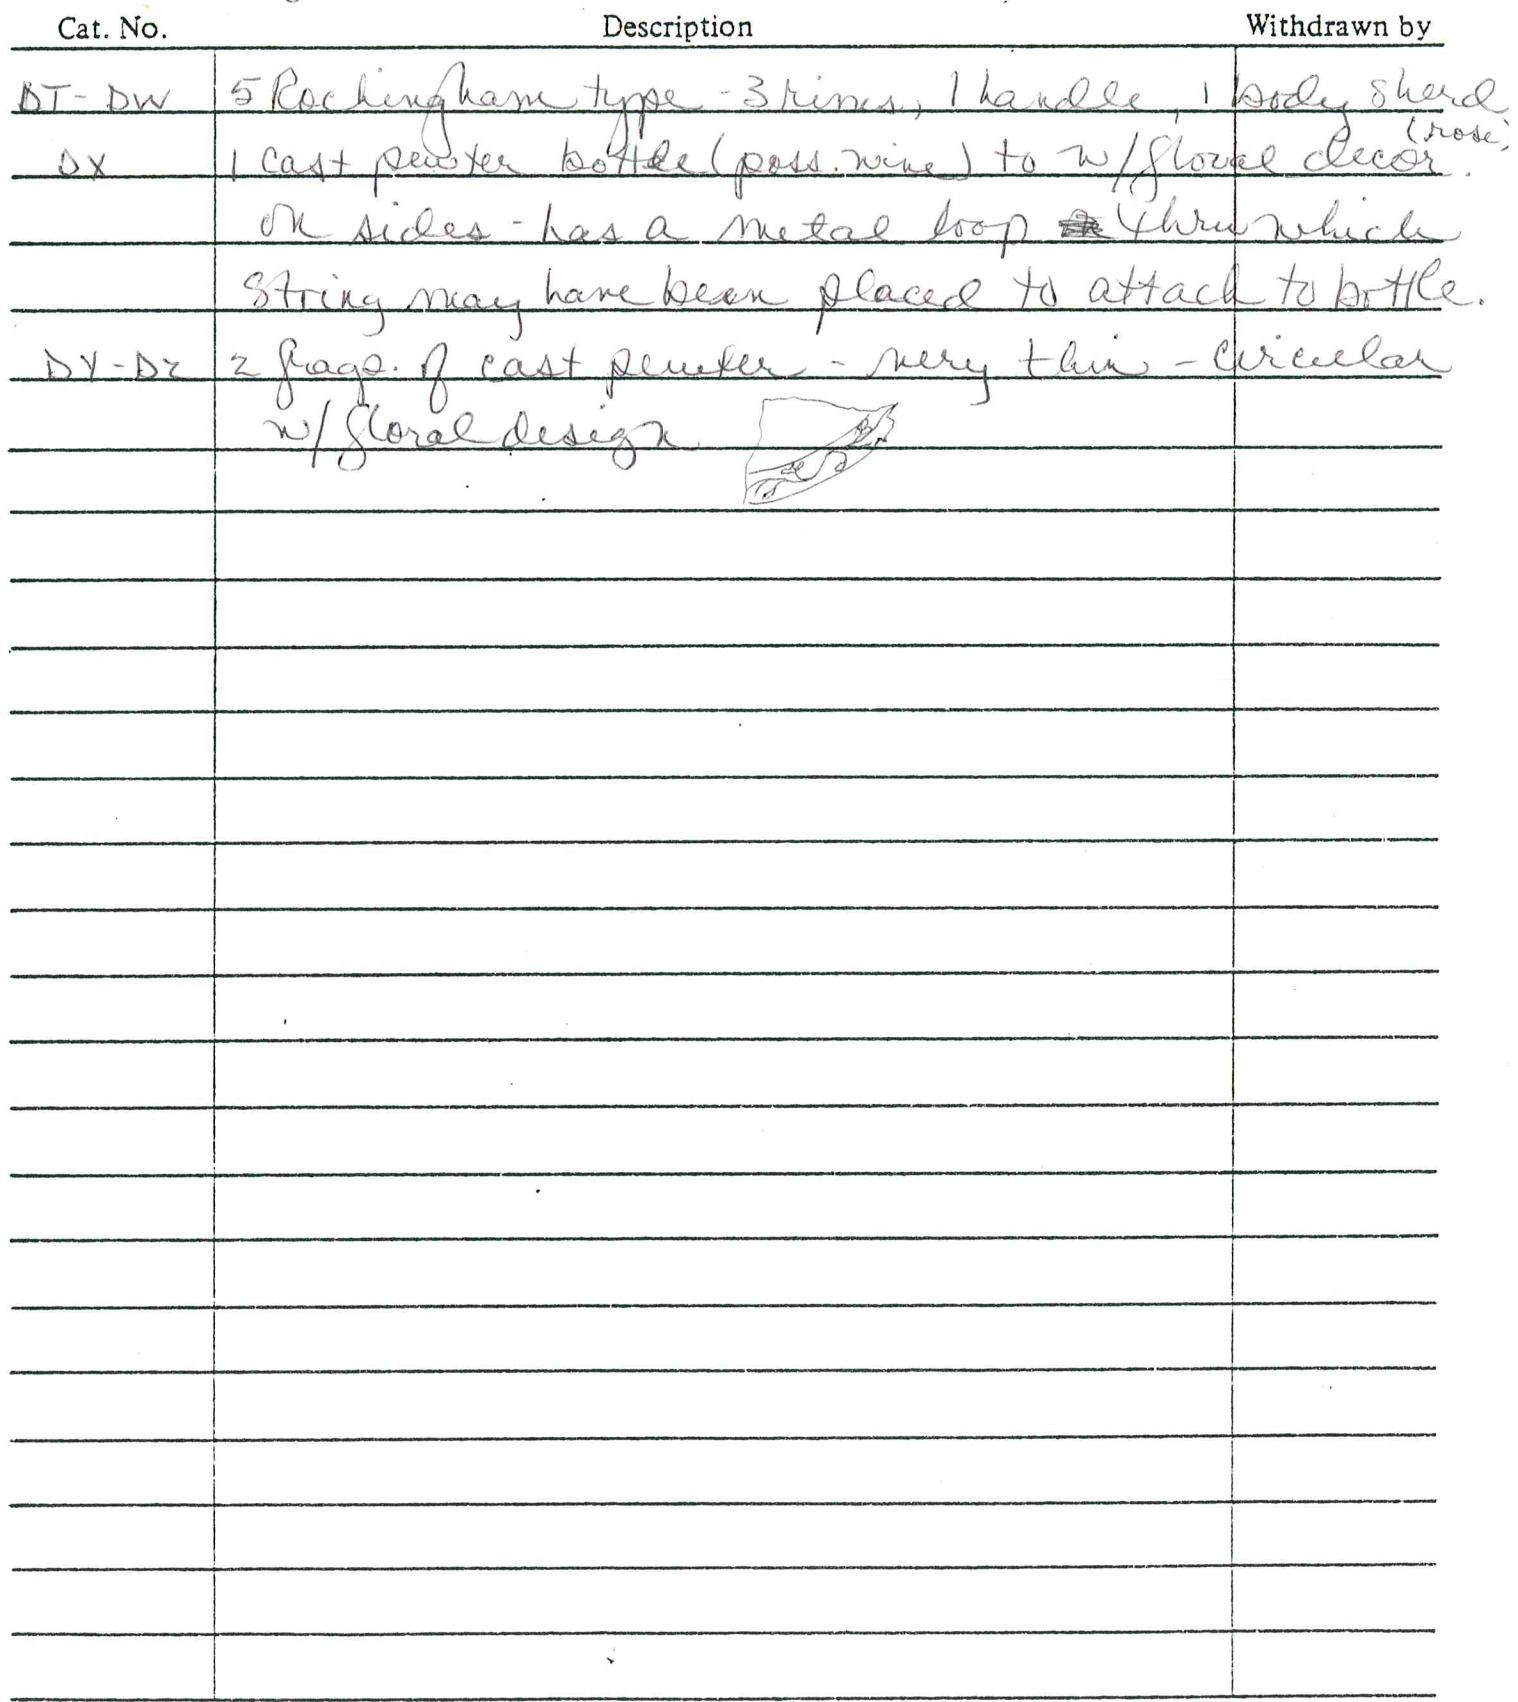 Cat. No. Description Withdrawn by
DT-DW 5 Rockingham type - 3 rims, 1 handle, 1 body sherd
(rose)
DX 1 cast pewter bottle (poss. wine) to w/floral decor.
on sides - has a metal loop thru which
string may have been placed to attach to bottle.
DY-DZ 2 frags. of cast pewter - very thin - circular
w/ floral design